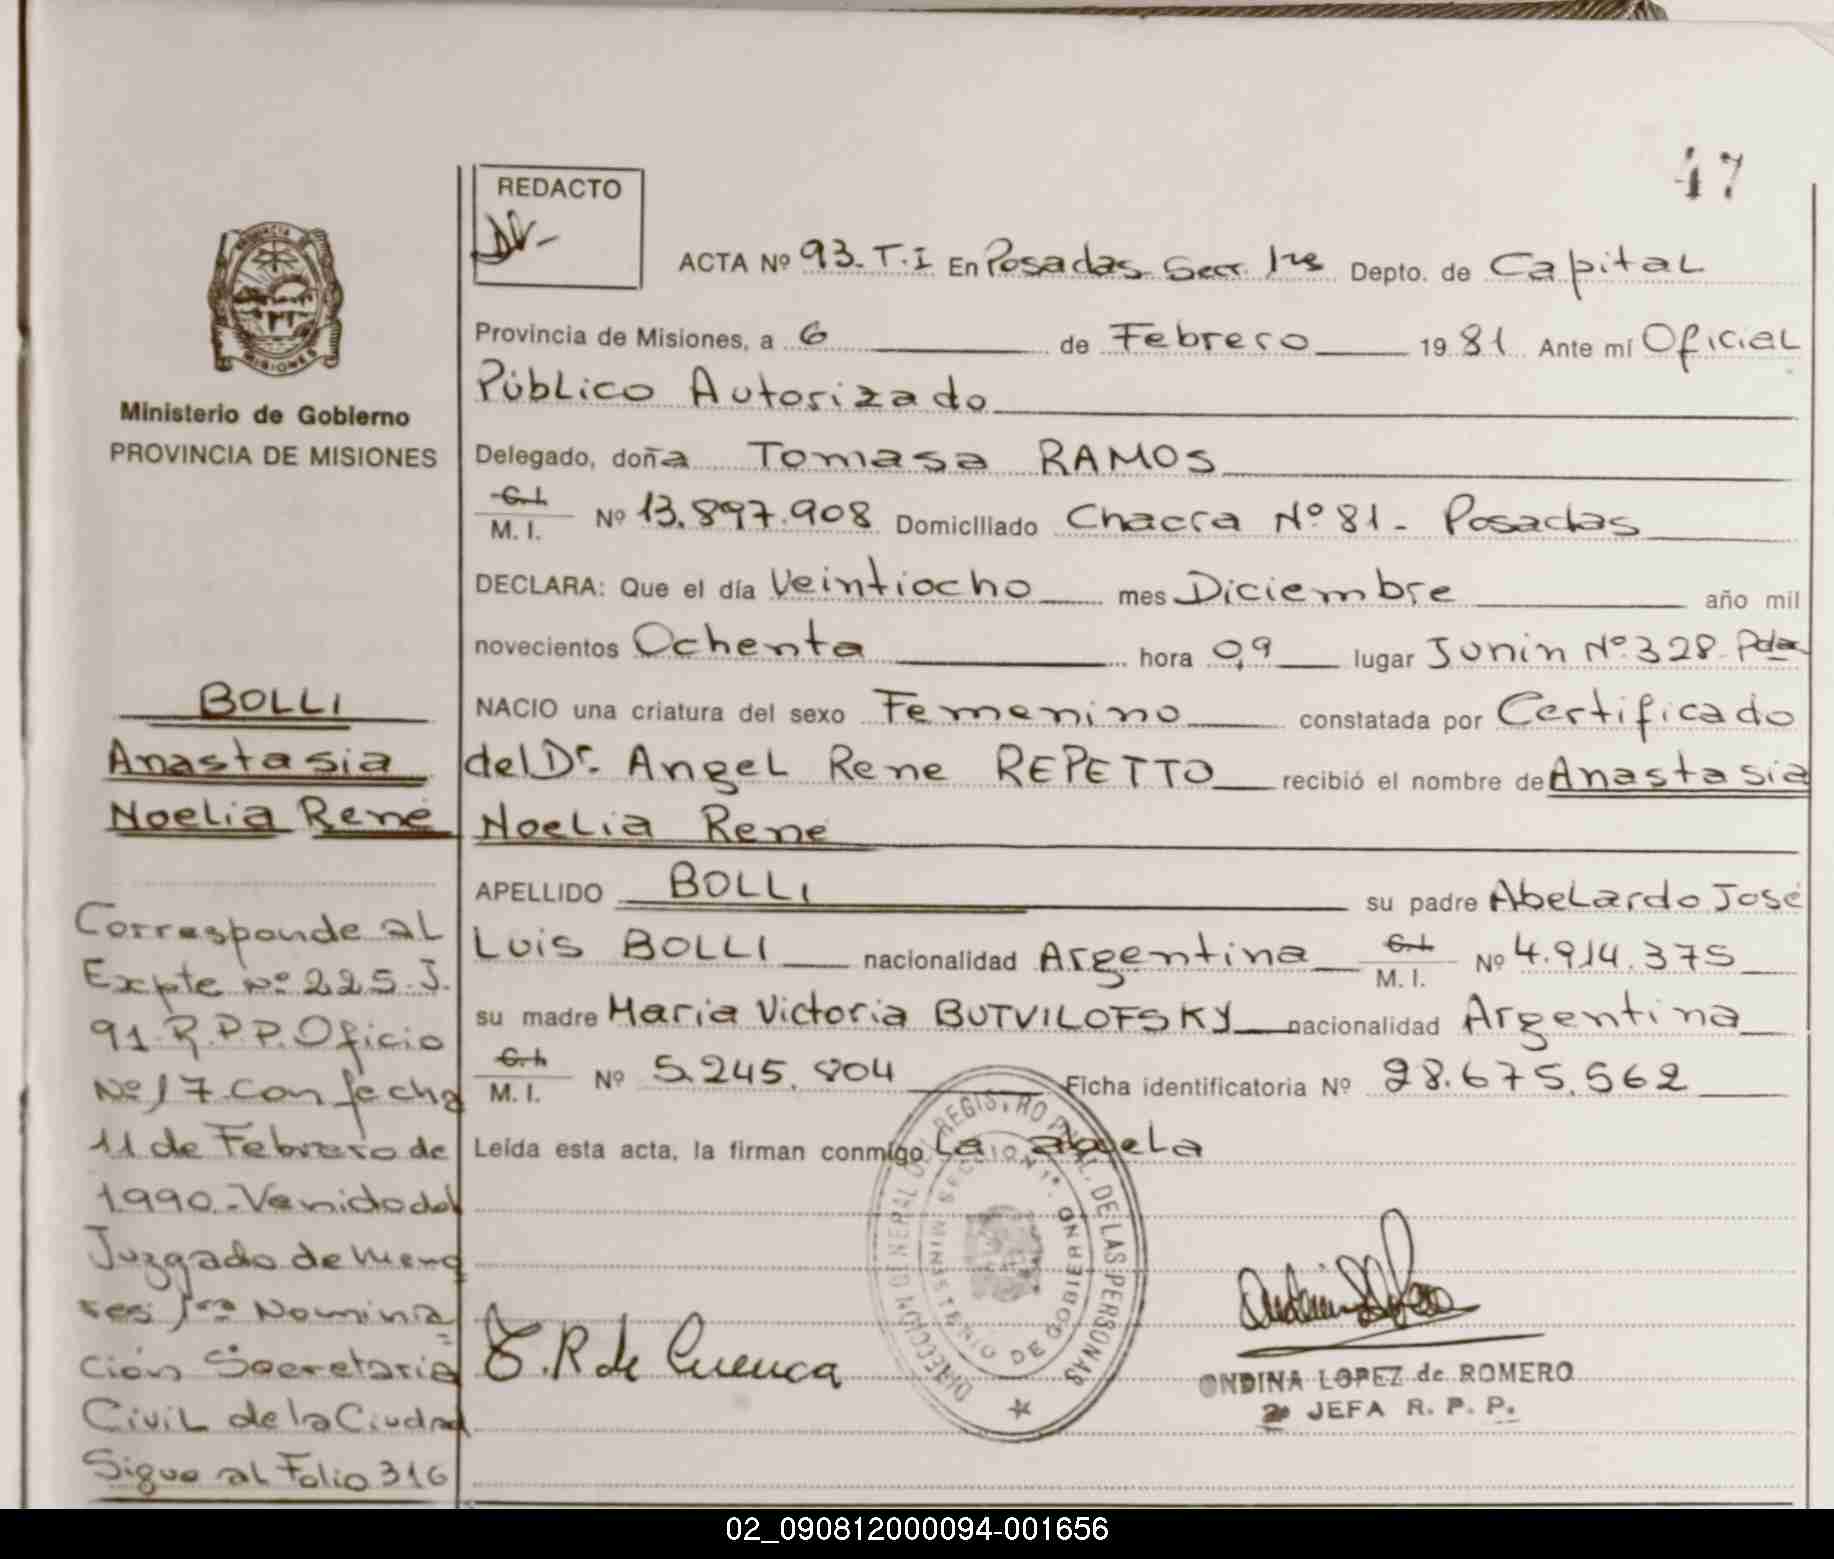 47
REDACTO
ACTA Nº 93. T. I En Posadas Secc. 1ra Depto. de Capital
Provincia de Misiones, a 6 de Febrero 1981 Ante mí Oficial
Público Autorizado
Delegado, doña Tomasa RAMOS
C.I. M. I. Nº 13.897.908 Domiciliado Chacra Nº 81 - Posadas
DECLARA: Que el día Veintiocho mes Diciembre año mil
novecientos Ochenta hora 0,9 lugar Junin Nº 328 Pdas
NACIO una criatura del sexo Femenino constatada por Certificado
del Dr. Angel Rene REPETTO recibió el nombre de Anastasia
Noelia Rene
APELLIDO BOLLI su padre Abelardo José
Luis BOLLI nacionalidad Argentina C.I. M. I. Nº 4.914.375
su madre Maria Victoria BUTVILOFSKY nacionalidad Argentina
C.I. M. I. Nº 5.245.804 Ficha identificatoria Nº 28.675.562
Leída esta acta, la firman conmigo La abuela
PROVINCIA DE
MISIONES
Ministerio de Gobierno
PROVINCIA DE MISIONES
BOLLI
Anastasia
Noelia René
Corresponde al
Expte Nº 225-J.
91-R.P.P. Oficio
Nº 17 con fecha
11 de Febrero de
1990.- Venido del
Juzgado de Meno
res 1ra Nomina
ción Secretaria
Civil de la Ciudad
Sigue al Folio 316
T. R de Cuenca
DIRECCION GENERAL DEL REGISTRO PCIAL. DE LAS PERSONAS
SECCION 1ª.
MINISTERIO DE GOBIERNO
ONDINA LOPEZ de ROMERO
2ª JEFA R. P. P.
02_090812000094-001656